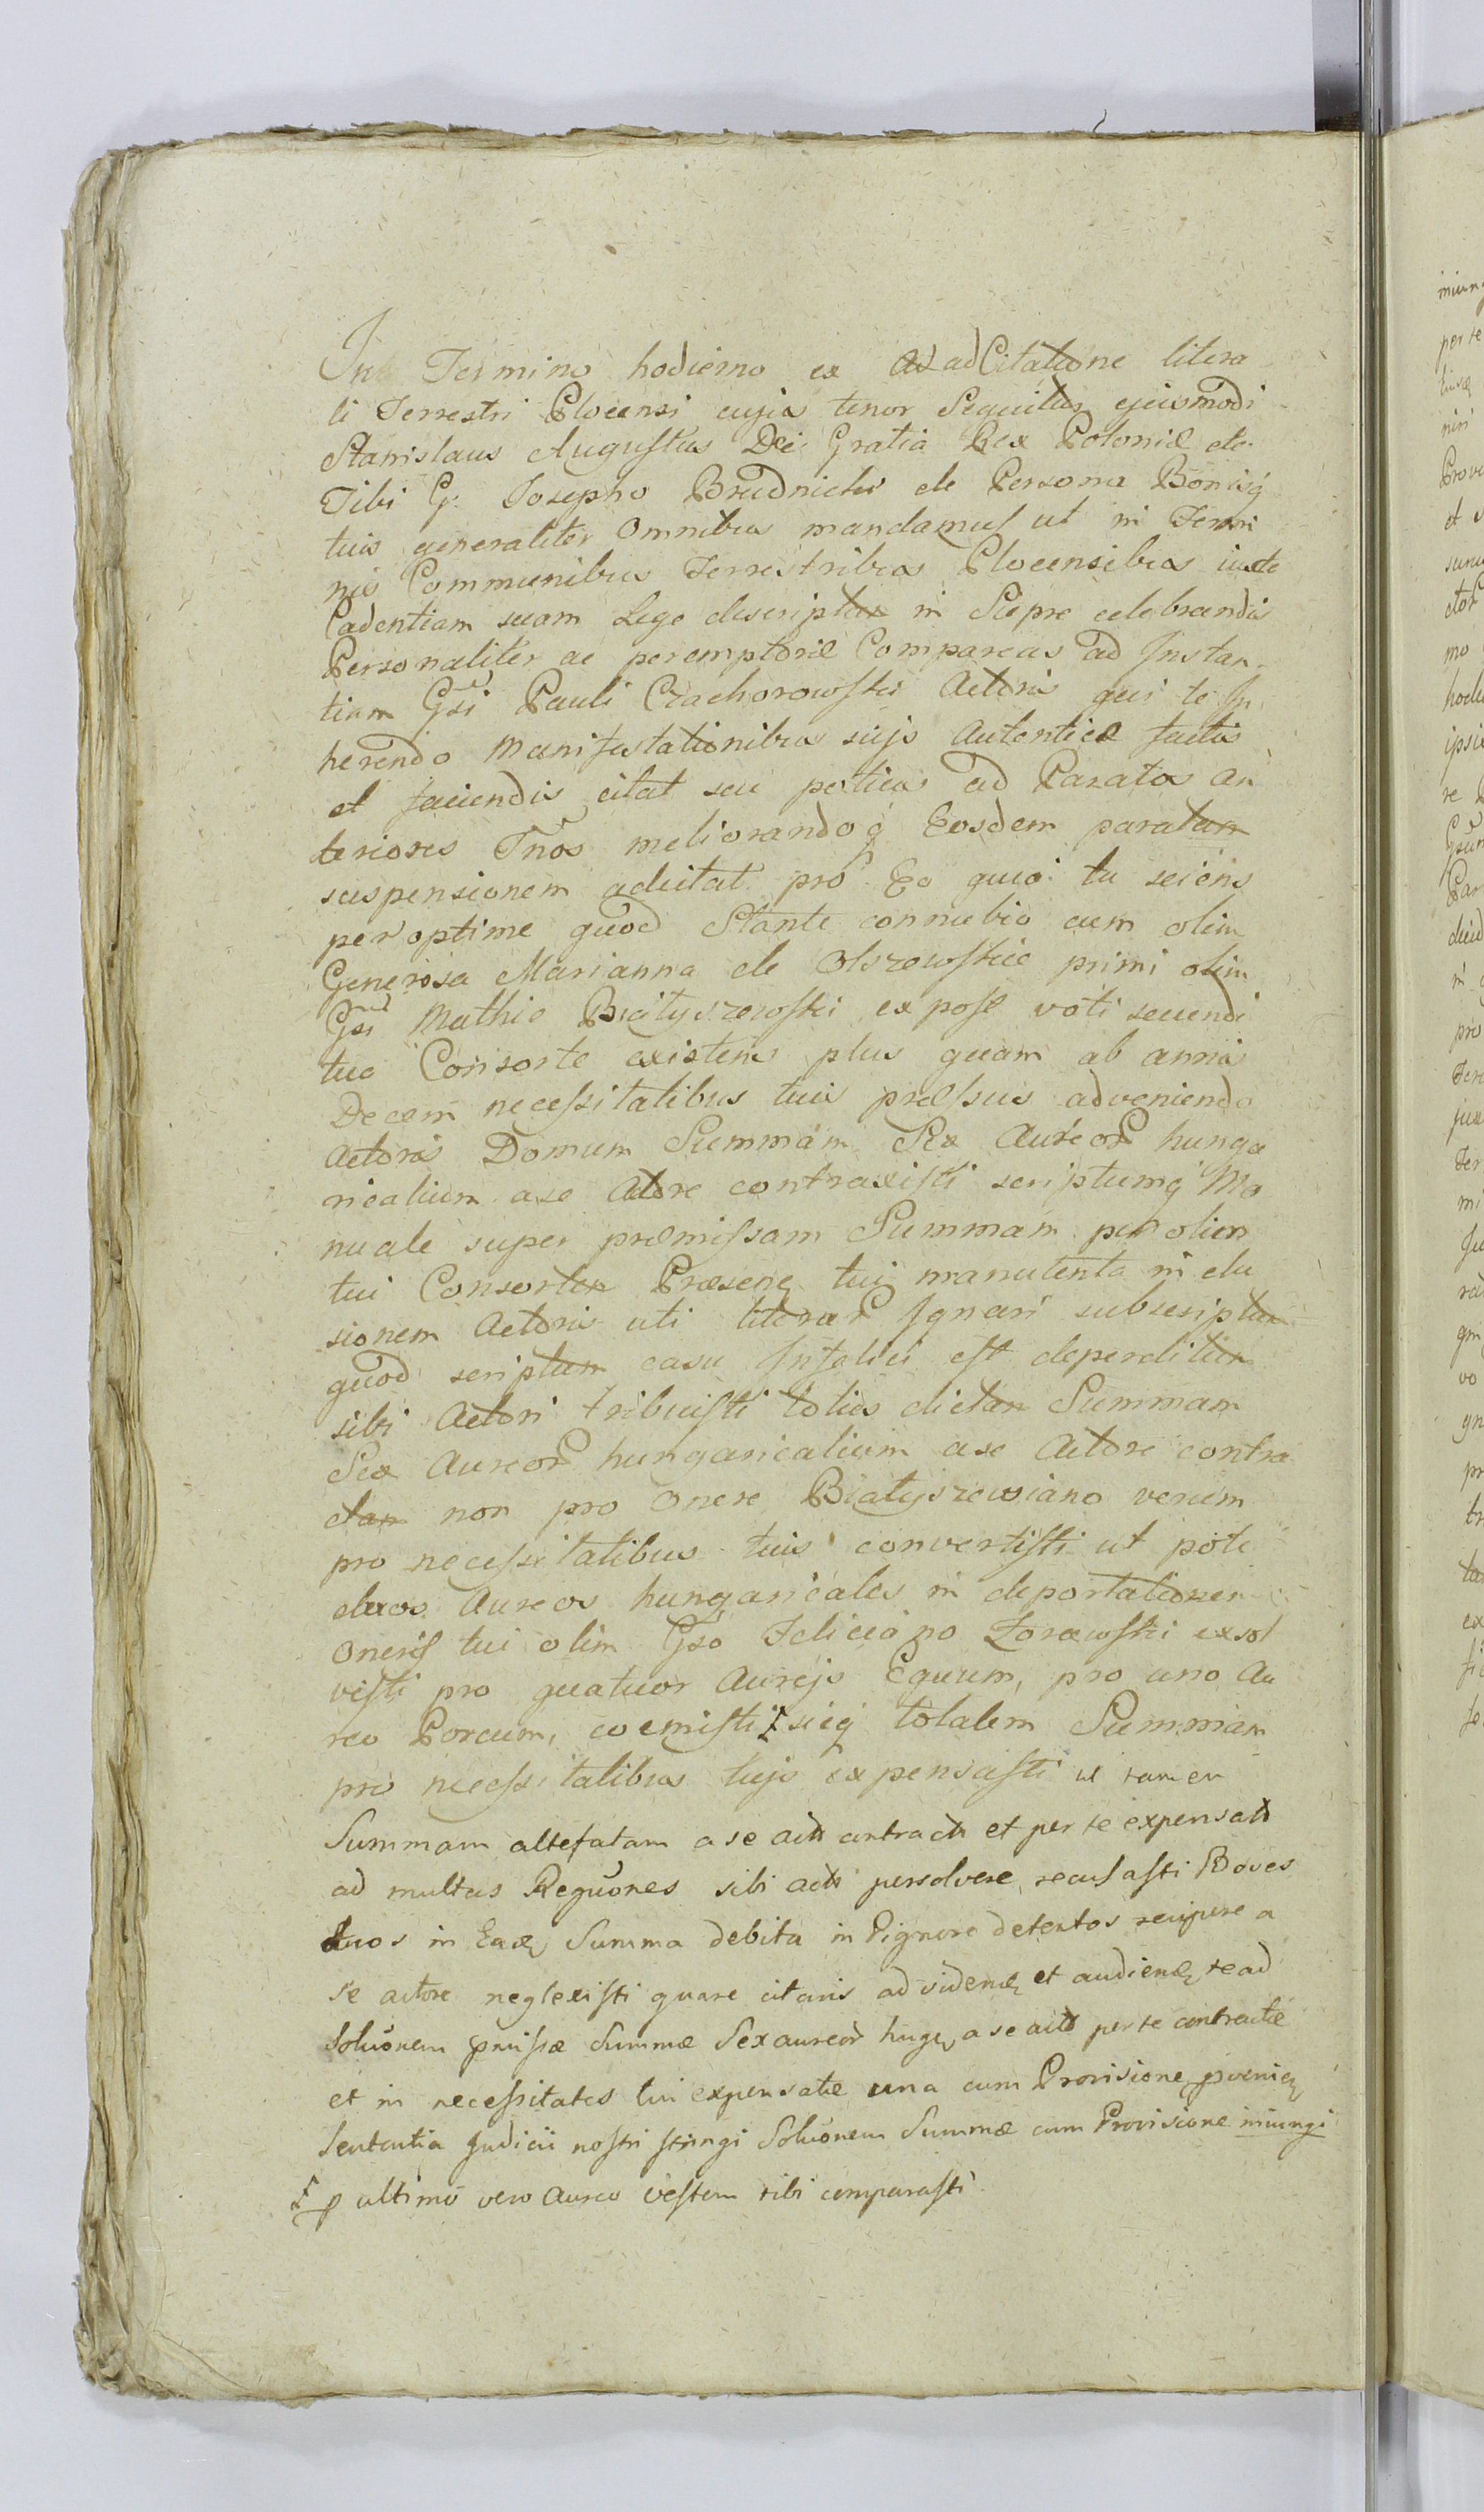 In Termino hodierno ex ad Citatione litera
li Terrestri Plocensi cujus tenor Sequitur ejusmodi
Stanislaus Augustus Dei Gratia Rex Poloniæ etc
Tibi G. Josepho Brudnicki de Persona Bonisq
tuis generaliter Omnibus mandamus ut in Termi
nis Communibus Terrestribus Plocensibus iuxta
Cadentiam suam Lege descriptam in Siepre celebrandis
Personaliter ac peremptorie Compareas ad Instan
tiam Gsi Pauli Czachorowski Actoris qui te In
herendo Manifestationibus suis Autentice factis
et faciendis citat seu potius ad Parata An
teriores Tnos meliorandoq Eosdem paratam
suspensionem adcitat pro Eo quia tu sciens
peroptime quod Stante connubio cum olim
Generosa Marianna de Olszewskie primi olim
Gsi Mathie Białyszewski expost voti secundi
tuo Consorte existens plus quam ab annis
Decem necessitatibus tuis præssus adveniendo
Actoris Domum Summam Sex Aureor hunga
ricalium a se Actore contraxisti scriptumq Ma
nuale super præmissam Summam per olim
tui Consortem Præsenq tui manutenta in elu
sionem Actoris uti literar Ignari subscriptam
quod scriptum casu Infelici est deperditum
sibi Actori tribuisti totius dictam Summam
Sex Aureor hungaricalium a se Actore contra
ctam non pro Onere Białyszewsiano verum
pro necessitatibus tuis convertisti ut pote
duos Aureos hungaricales in deportationem
Oneris tui olim Gso Feliciano Zorawski exsol
visti pro quatuor Aurejs Equum, pro uno Au
reo Porcum, coemisti sicq totalem Summam
pro necessitatibus tujs expensasti et tamen
Summam altefatam a se acto contracta et per te expensato
ad multas Requones sibi acti persolvere recusasti Boves
duos in Eadq Summa debita in Pignore detentos recipere a
se actore neglexisti quare citaris ad videndq et audiendq te ad
Soluonem pmissæ Summæ Sex aureor hungq a se acto per te contractæ
et in necessitates tui expensatæ una cum Provisione pvenienq
Sententia Judicii nostri stringi Soluonem Summæ cum Provisione iniungi
p ultimo vero Aureo vestem tibi comparasti